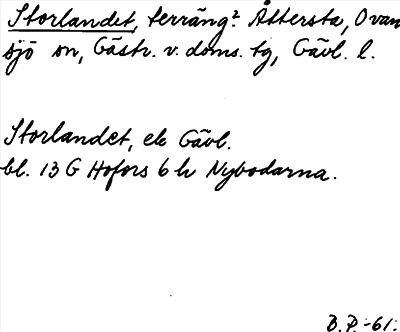 Storlandet, terräng? Åttersta, Ovan
sjö sn, Gästr. v. doms. tg, Gävl. l.
Storlandet, ek Gävl.
bl. 13 G Hofors 6 h Nybodarna.
B.P. -61.